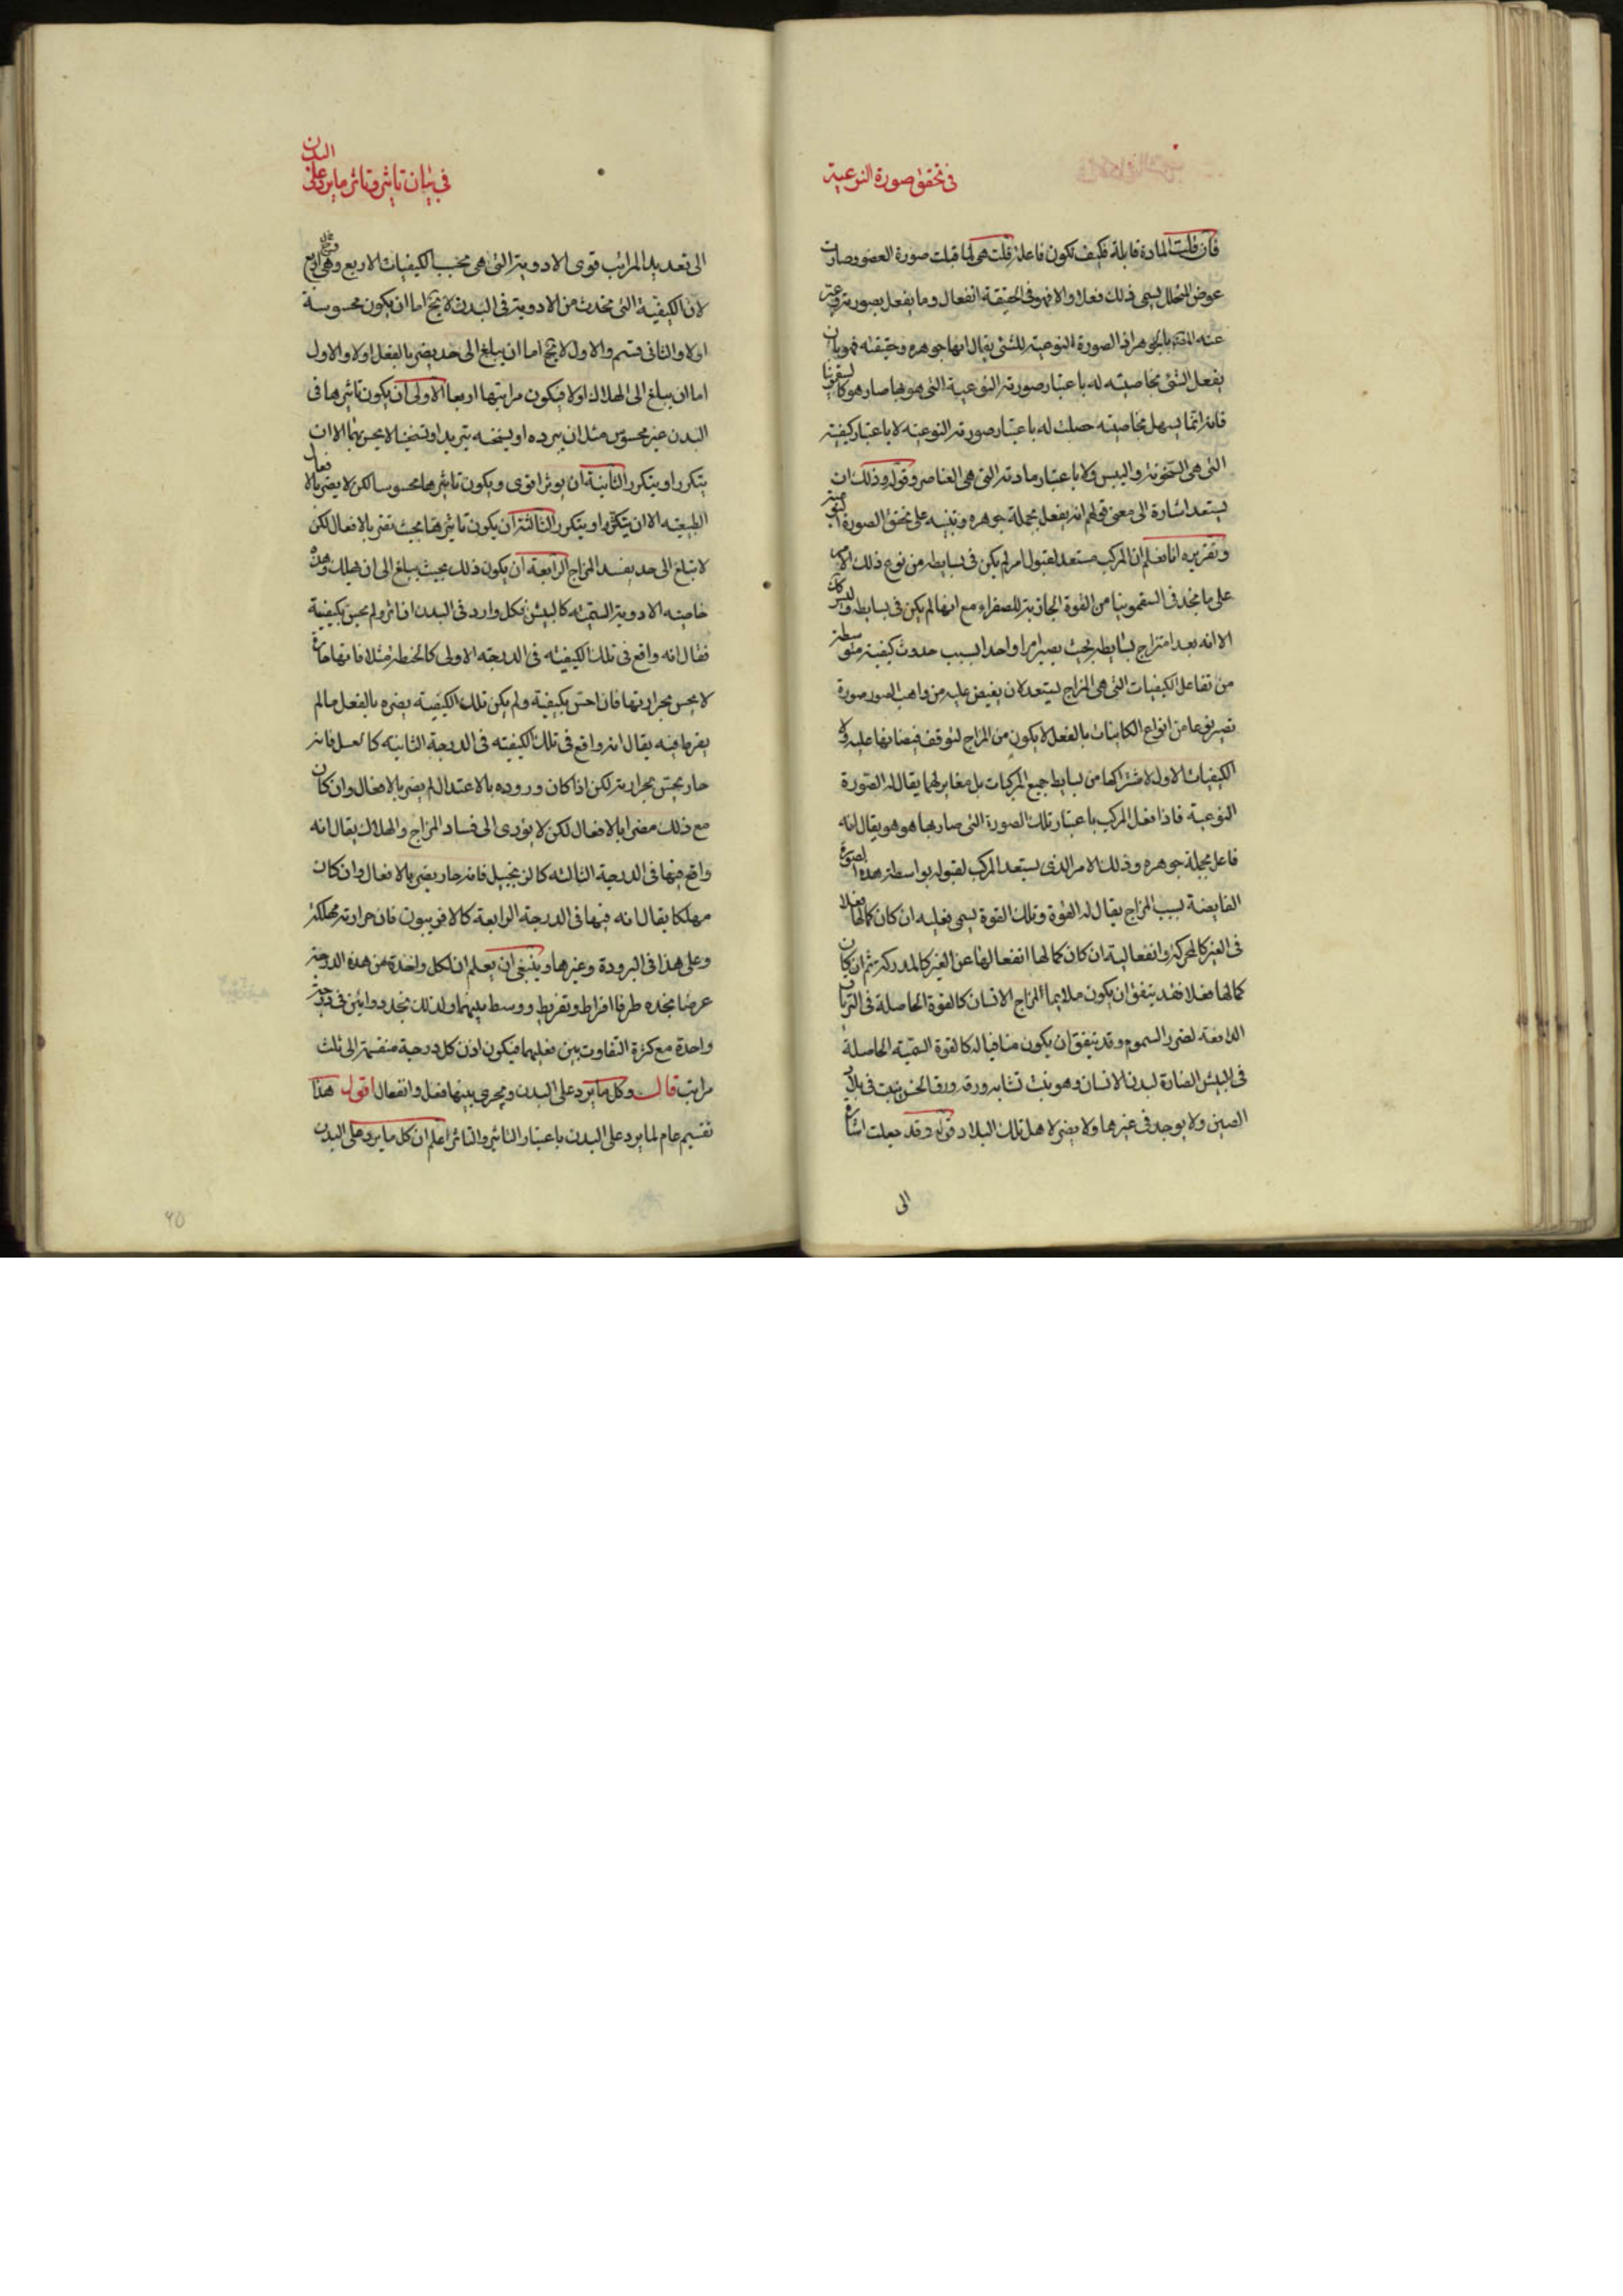 في تحقق صورة النوعية
فان قلت المادة قابلة فكيف تكون فاعلة قلت هي لما قبلت صورة العضو وصارت
عوض المتحلل يسمى ذلك فعلا والا فهو في الحقيقة انفعال وما يفعل بصورته وعبر
عنه بالجوهر اذ الصورة النوعية للشئ يقال انها جوهره وحقيقته فهو بان
يفعل الشئ بخاصيته له باعتبار صورته النوعية التى هو بها صار هو كالسقمونيا
فانه انما يسهل بخاصيته حصلت له باعتبار صورته النوعيه لا باعتبار كيفيته
التى هى السخونة واليبس ولا باعتبار مادته التى هى العناصر وقوله وذلك ان
يستعد اشارة الى معنى قولهم انه يفعل بجملة جوهره وتنبيه على تحقق الصورة النوعية
وتقريره انا نعلم ان المركب مستعد لقبول امر لم يكن في بسايطه من نوع ذلك الامر
على ما نجد فى السقمونيا من القوة الجاذبة للصفراء مع انها لم يكن فى بسايطه وليس ذلك
الا انه بعد امتزاج بسايطه بحيث يصير امرا واحدا لسبب حدوث كيفية متوسطة
من تفاعل الكيفيات التى هى المزاج ليستعد لان يفيض عليه من واهب الصور صورة
تصير نوعا من انواع الكاينات بالفعل لا يكون من المزاج لتوقف فيضانها عليه ولا
الكيفيات الاول لاشتراكها من بسايط جميع المركبات بل مغاير لهما يقال له الصورة
النوعية فاذا فعل المركب باعتبار تلك الصورة التى صار بها هو هو يقال انه
فاعل بجملة جوهره وذلك الامر الذى يستعد المركب لقبوله بواسطة هذه الصورة
الفايضة بسبب المزاج يقال له القوة وتلك القوة يسمى فعليه ان كان كمالها فعلا
فى الغير كالمحركة وانفعالية ان كان كمالها انفعالها عن الغير كالمدركة ثم ان كان
كمالها فعلا فقد يتفق ان يكون ملايما لمزاج الانسان كالقوة الحاصلة فى الترياق
الدافعة لضرر السموم وقد يتفق ان يكون منافيا له كالقوة السمية الحاصلة
فى البيش الضارة لبدن الانسان وهو نبت تشابه ورقه ورق الخس ينبت فى بلاد
الصين ولا يوجد فى غيرها ولا يضر لاهل تلك البلاد قوله وقد جعلت اشارة
الى
في بيان تاثير وتاثر ما يرد على البدن
الى تعديد المراتب قوى الادوية التى هى بحسب الكيفيات الاربع وهى اربع
لان الكيفية التى تحدث من الادوية فى البدن لا يخ اما ان يكون محسوسة
اولا والثانى قسم والاول لا يخ اما ان يبلغ الى حد يضر بالفعل اولا والاول
اما ان يبلغ الى الهلاك اولا فيكون مراتبها اربعا الاولى ان يكون تاثيرها فى
البدن غير محسوس مثل ان يبرده او يسخنه تبريدا وتسخينا لا يحس بهما الا ان
يتكرر او يتكرر الثانية ان يوثر اقوى ويكون تاثيرها محسوسا لكن لا يضر بالافعال
الطبيعيه الا ان يتكرر او يتكرر الثالثة ان يكون تاثيرها بحيث تضر بالافعال لكن
لا تبلغ الى حد يفسد المزاج الرابعة ان يكون ذلك بحيث يبلغ الى ان يهلك وهذه
خاصية الادوية السمية كالبيش فكل وارد فى البدن اذا اثر ولم يحس بكيفية
فقال انه واقع فى تلك الكيفيته فى الدرجة الاولى كالحنطة مثلا فانها حارة
لا يحس بحرارتها فان احس بكيفية ولم يكن تلك الكيفية يضره بالفعل ما لم
يفرط فيه يقال انه واقع فى تلك الكيفيته فى الدرجة الثانيه كالعسل فانه
حار يحس بحرارته لكن اذا كان وروده بالاعتدال لم يضر بالافعال وان كان
مع ذلك مضرا بالافعال لكن لا يؤدى الى فساد المزاج والهلاك يقال انه
واقع فيها فى الدرجة الثالثه كالزنجبيل فانه حار يضر بالافعال وان كان
مهلكا يقال انه فيها فى الدرجة الرابعة كالافربيون فان حرارته مهلكة
وعلى هذا فى البرودة وغيرها وينبغى ان يعلم ان لكل واحدة من هذه الدرجة
عرضا نجده طرفا افراط وتفريط ووسط بينهما ولذلك نجد دوائين فى درجة
واحدة مع كثرة التفاوت بين فعليهما فيكون اذن كل درجة منقسمة الى ثلث
مراتب قال وكل ما يرد على البدن ويجرى بينهما فعل وانفعال اقول هذا
تقسيم عام لما يرد على البدن باعتبار التاثير والتاثر اعلم ان كل ما يرد على البدن